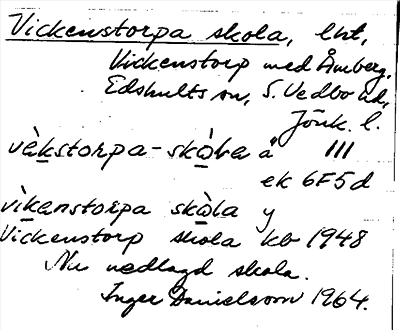 Vickenstorpa skola, lht,
Vickenstorp med Åmberg,
Edshults sn, S. Vedbo hd,
Jönk. l.
vèkstorpa-skòla ä III
ek 6F5d
vìkenstorpa skòla y
Vickenstorp skola kb 1948
Nu nedlagd skola.
Inger Danielsson 1964.